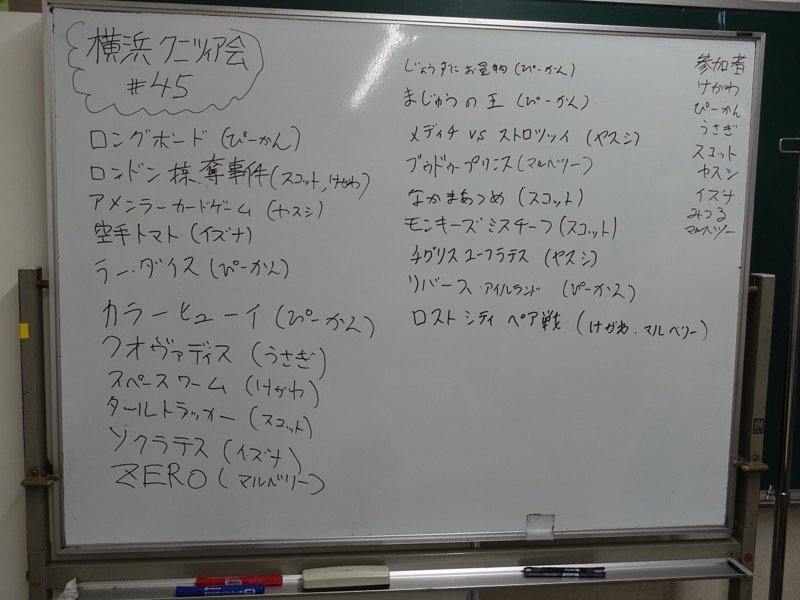 横浜クニツィア会
#45
ロングボード(ぴーかん)
ロンドン掠奪事件(スコット,けがわ)
アメンラーカードゲーム(ヤスシ)
空手トマト(イズナ)
ラー・ダイス(ぴーかん)
カラーヒューイ(ぴーかん)
クオヴァディス(うさぎ)
スペースワーム(けがわ)
タールトラッカー(スコット)
ソクラテス(イズナ)
ZERO(マルベリー)
じょうずにお買物(ぴーかん)
まじゅうの王(ぴーかん)
メディチ VS ストロッツィ(ヤスシ)
ブゥドゥープリンス(マルベリー)
なかまあつめ(スコット)
モンキーズミスチーフ(スコット)
チグリスユーフラテス(ヤスシ)
リバース・アイルランド(ぴーかん)
ロストシティ ペア戦(けがわ・マルベリー)
参加者
けがわ
ぴーかん
うさぎ
スコット
ヤスシ
イズナ
みつる
マルベリー